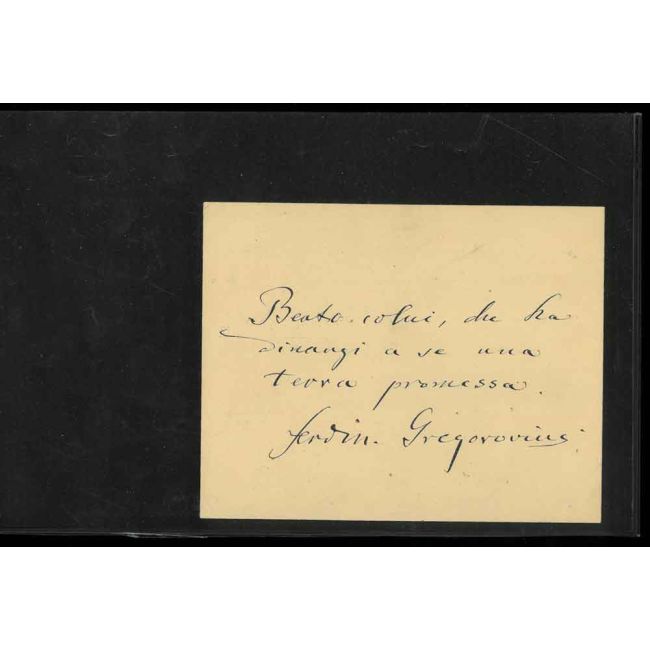 Beato colui, che ha
dinanzi a se una
terra promessa.
Ferdin. Gregorovius